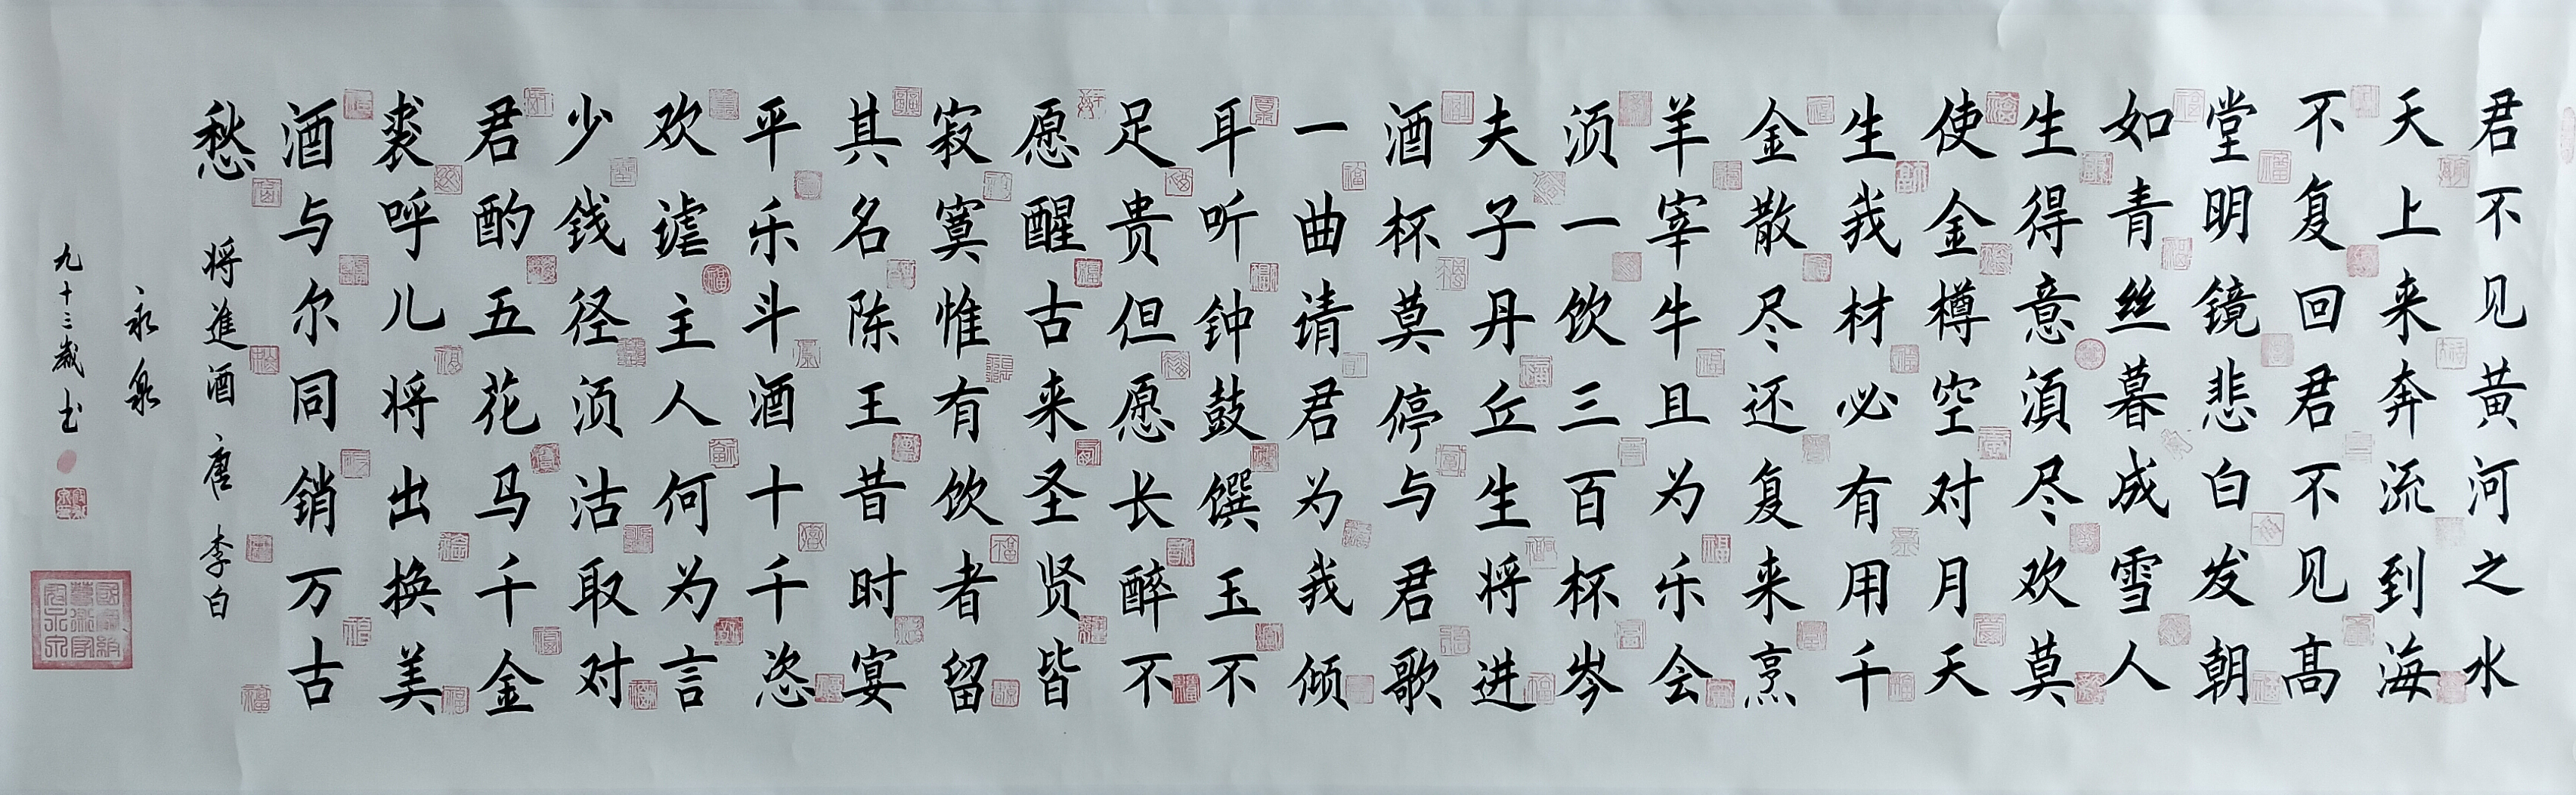 君不见黄河之水
天上来奔流到海
不复回君不见高
堂明镜悲白发朝
如青丝暮成雪人
生得意須尽欢莫
使金樽空对月天
生我材必有用千
金散尽还复来烹
羊宰牛且为乐会
须一饮三百杯岑
夫子丹丘生将进
酒杯莫停与君歌
一曲请君为我倾
耳听钟鼓馔玉不
足贵但愿长醉不
愿醒古来圣贤皆
寂寞惟有饮者留
其名陈王昔时宴
平乐斗酒十千恣
欢谑主人何为言
少钱径须沽取对
君酌五花马千金
裘呼儿将出换美
酒与尔同销万古
愁 将進酒 唐 李白
永泉
九十三歲书